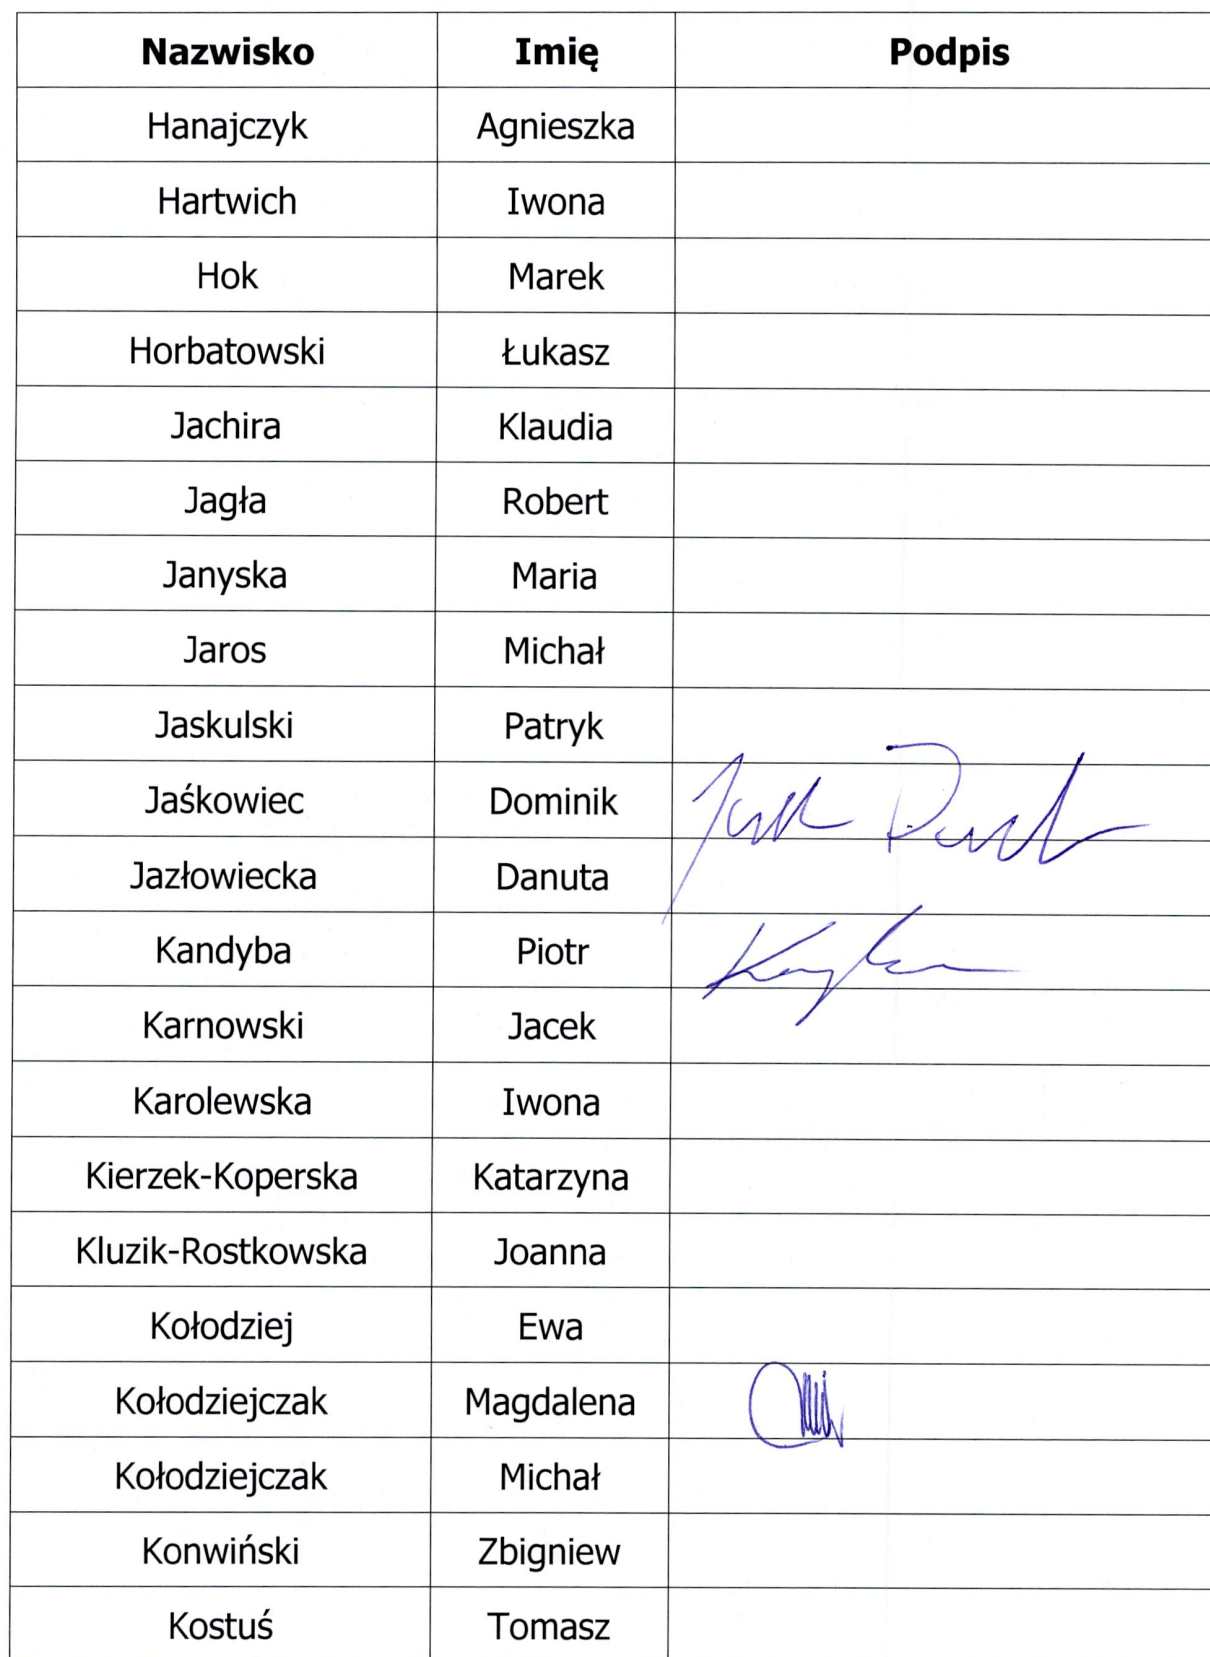 Nazwisko Imię Podpis
Hanajczyk Agnieszka
Hartwich Iwona
Hok Marek
Horbatowski Łukasz
Jachira Klaudia
Jagła Robert
Janyska Maria
Jaros Michał
Jaskulski Patryk
Jaśkowiec Dominik
Jazłowiecka Danuta
Kandyba Piotr
Karnowski Jacek
Karolewska Iwona
Kierzek-Koperska Katarzyna
Kluzik-Rostkowska Joanna
Kołodziej Ewa
Kołodziejczak Magdalena
Kołodziejczak Michał
Konwiński Zbigniew
Kostuś Tomasz